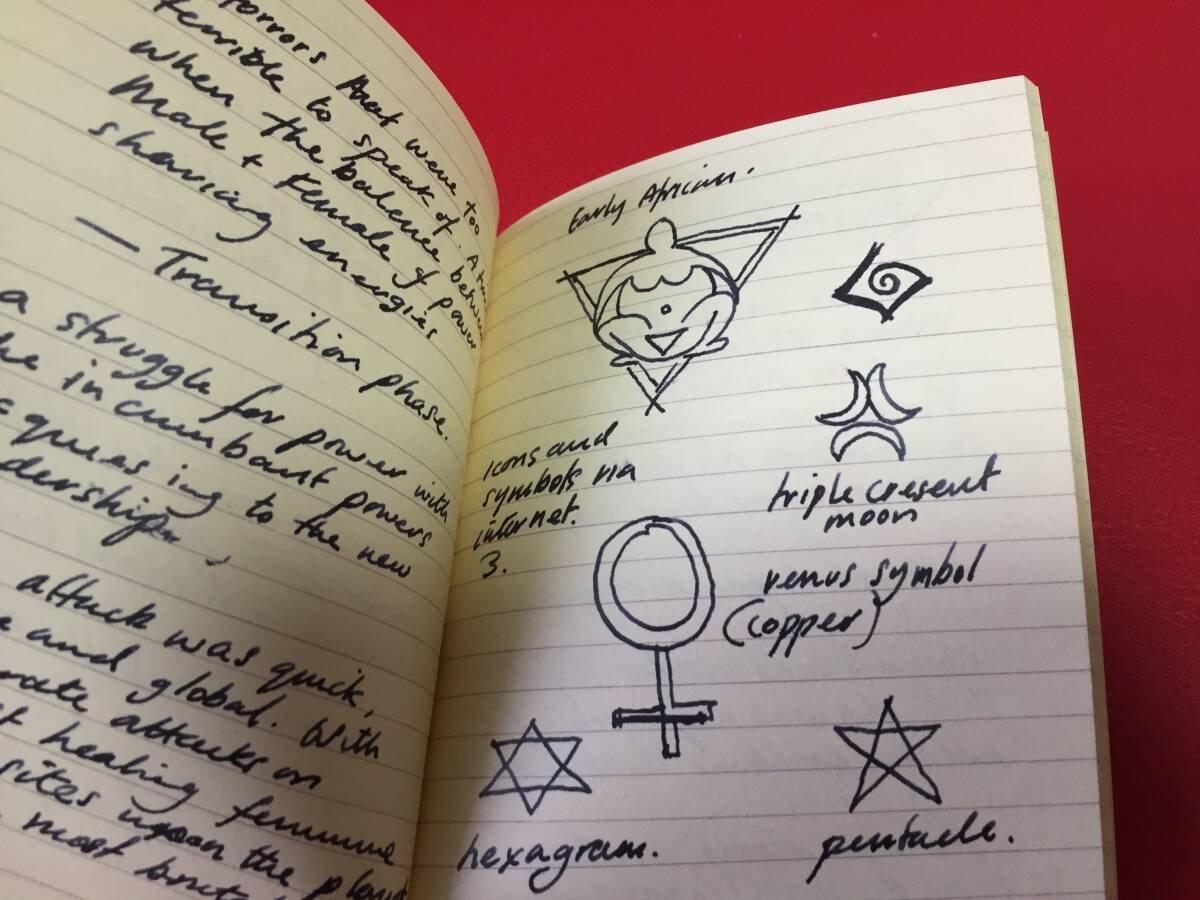 horrors that were too
terrible to speak of. A
when the balance between
Male + Female of power
sharing energies
— Transition phase.
a struggle for power with
the incumbant powers
acquiesing to the new
attack was quick,
and global. With
attacks on
healing feminine
sites upon the
most
Early African.
icons and
symbols via
internet.
3.
triple cresent
moon
venus symbol
(copper)
hexagram.
pentacle.